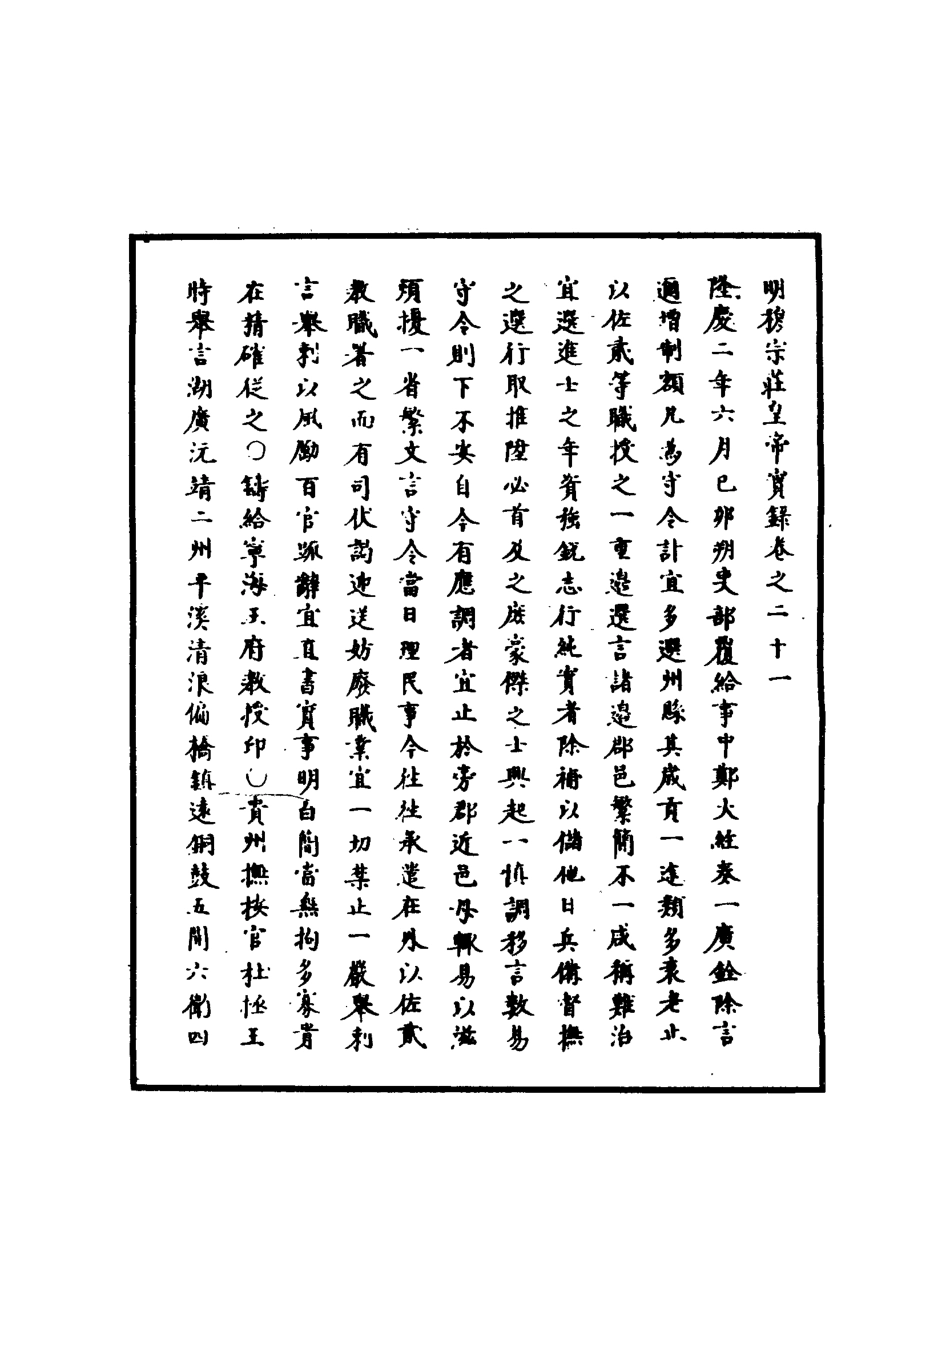 明穆宗莊皇帝實錄卷之二十一
隆慶二年六月已卯朔吏部覆給事中鄭大經奏一廣銓除言
邇增制額凡為守令計宜多選州縣其歲貢一途類多衰老止
以佐貳等職授之一重邊選言諸邊郡邑繁簡不一咸稱難治
宜選進士之年資強銳志行純實者除補以儲他日兵備督撫
之選行取推陞必首及之庶豪傑之士興起一慎調移言數易
守令則下不安自今有應調者宜止於旁郡近邑毋輒易以滋
煩擾一省繁文言守令當日理民事今往往承遣在外以佐貳
教職署之而有司伏謁迎送妨廢職業宜一切禁止一嚴舉刺
言舉刺以風勵百官疏辭宜直書實事明白簡當無拘多寡貴
在精確從之○鑄給寧海王府教授印○貴州撫按官杜拯王
時舉言湖廣沅靖二州平溪清浪偏橋鎮遠銅鼓五開六衛四